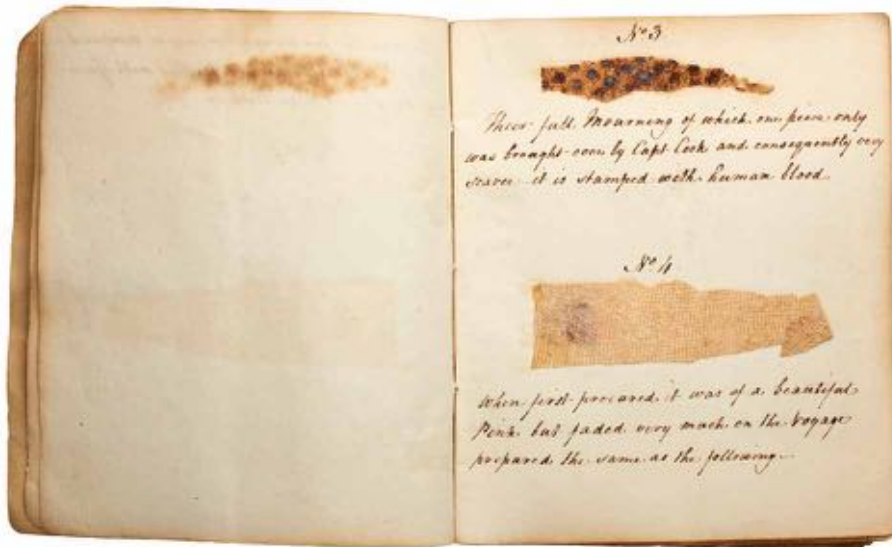 No. 3
Their full Mourning of which one piece only
was brought over by Capt Cook and consequently very
scarce it is stamped with human blood
No. 4
When first procured it was of a beautiful
Pink but faded very much on the Voyage
prepared the same as the following